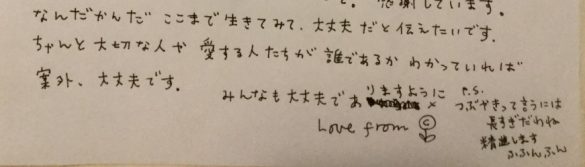 て。感謝しています。
なんだかんだ ここまで生きてみて、大丈夫だと伝えたいです。
ちゃんと大切な人や愛する人たちが誰であるかわかっていれば
案外、大丈夫です。
みんなも大丈夫でありますように ×
Love from ©
P.S.
つぶやきって言うには
長すぎだわね
精進します
ふふんふん